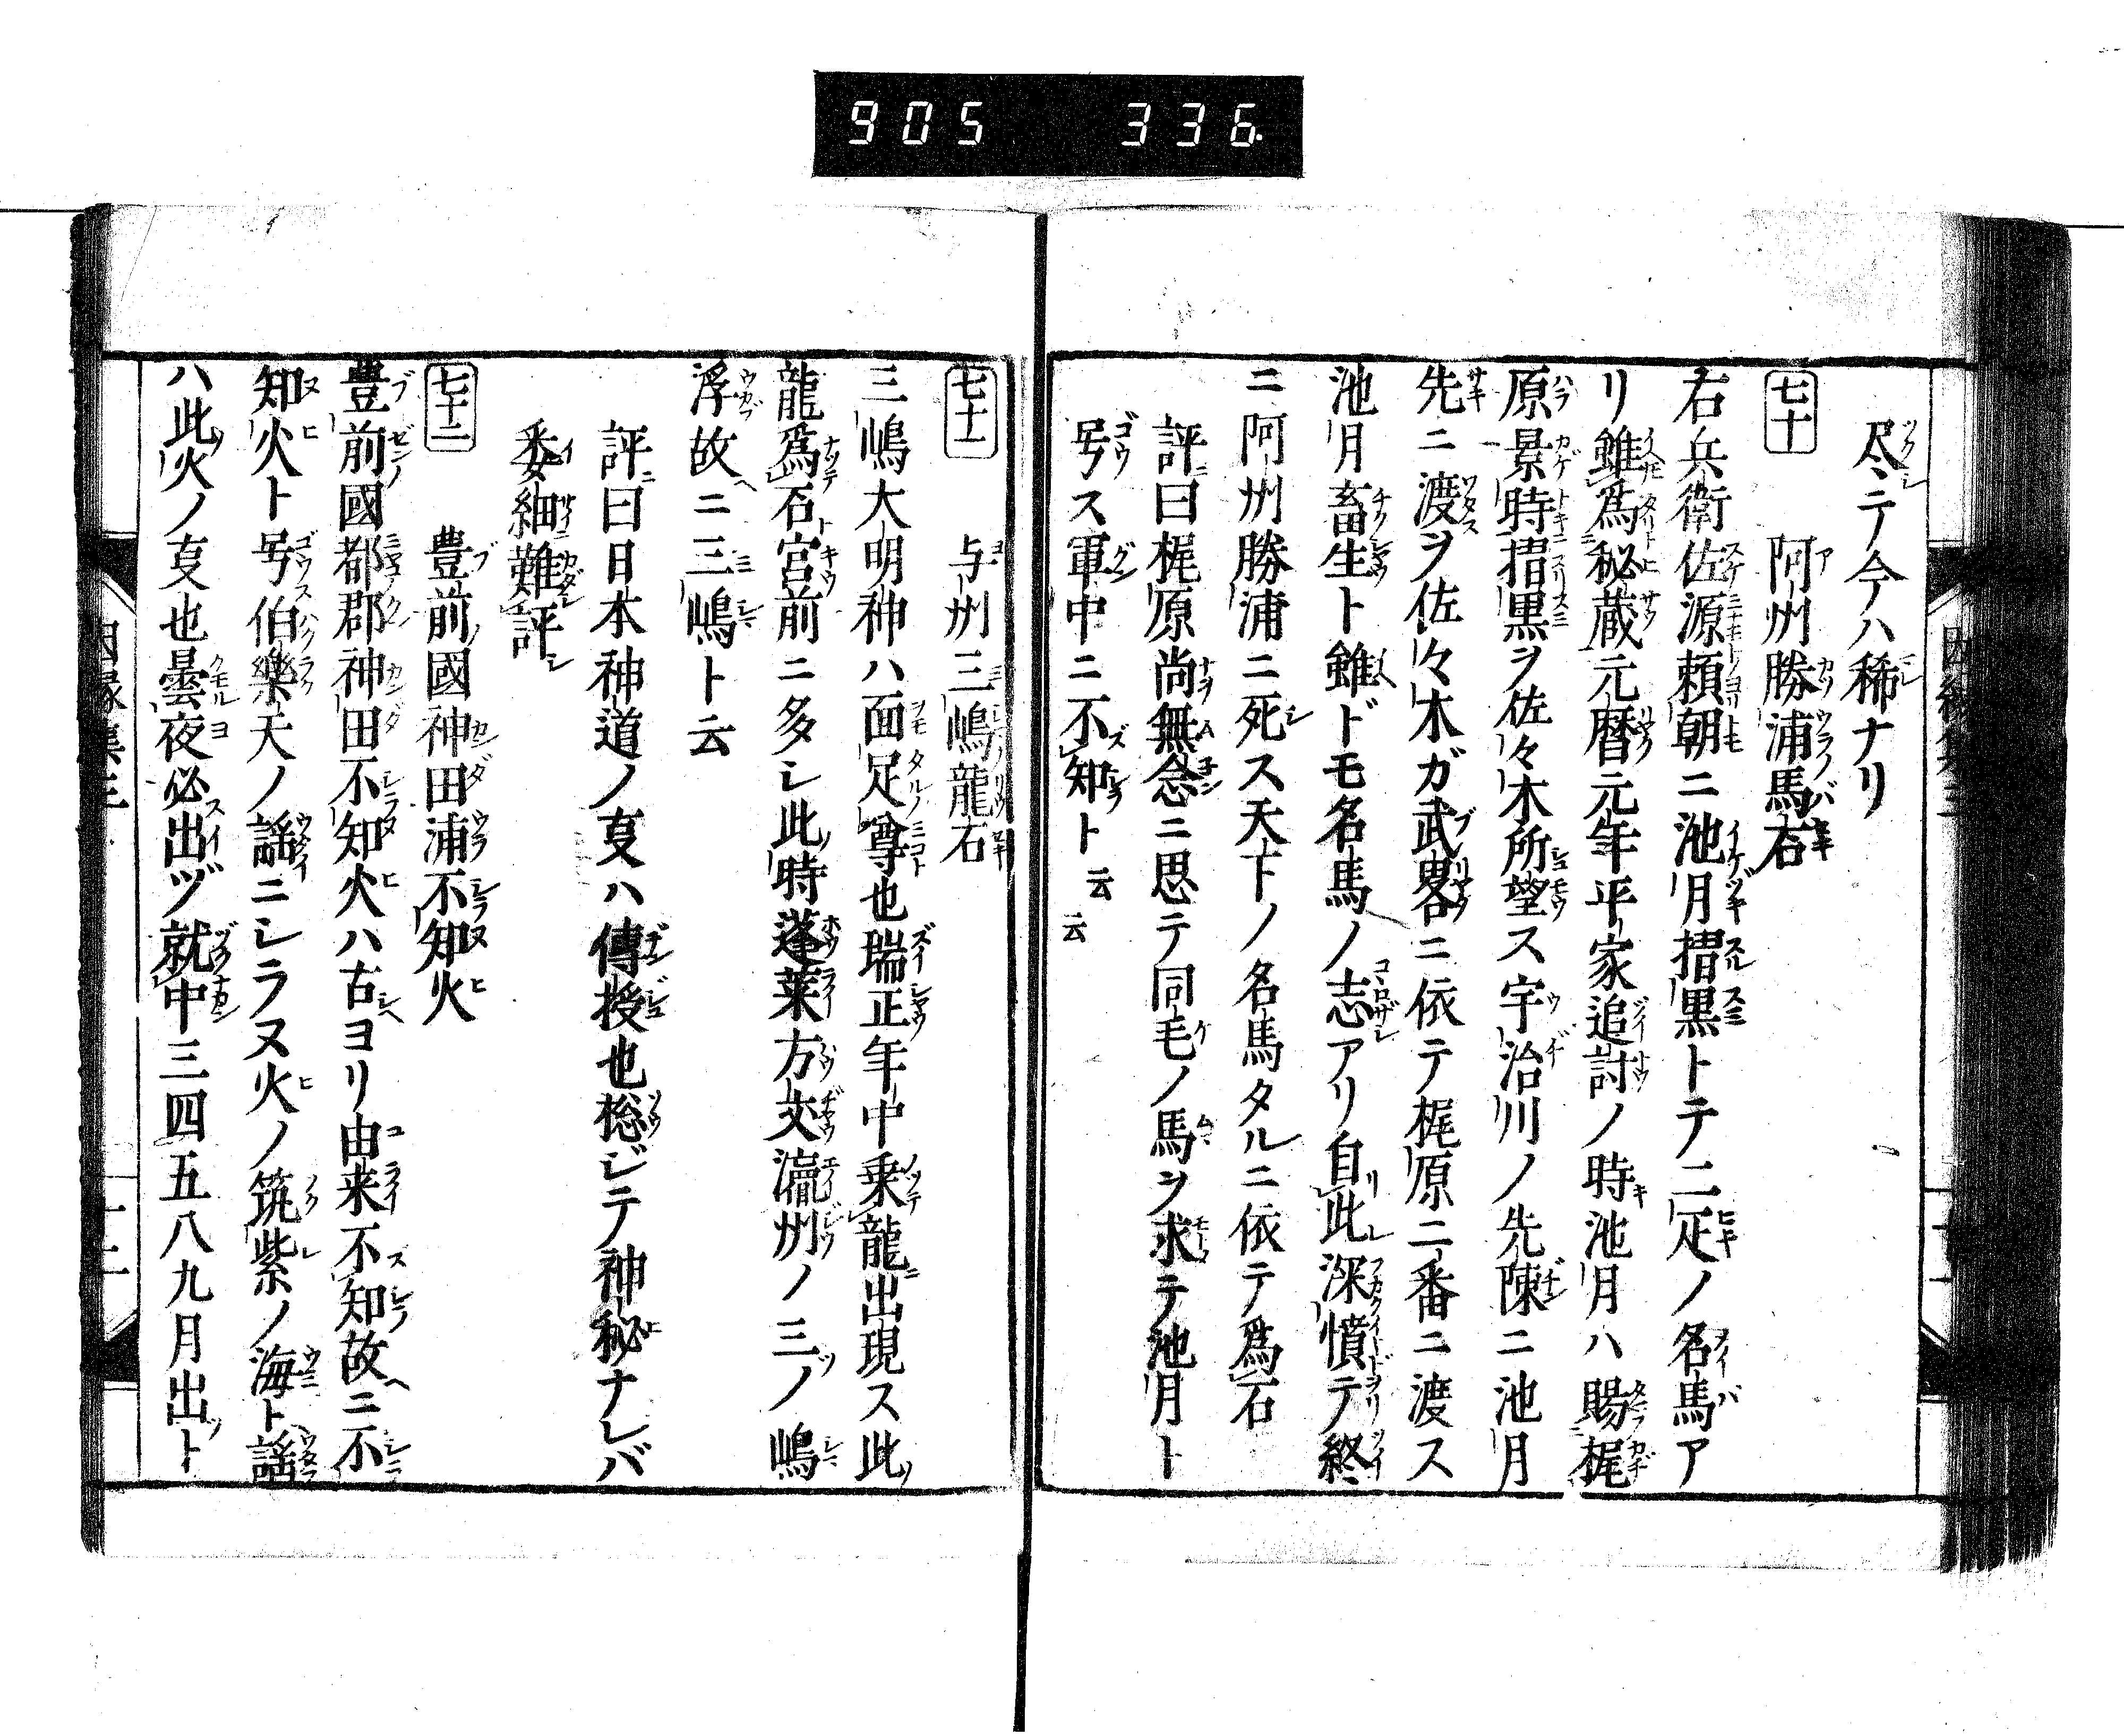 905 336
尽テ今ハ稀ナリ
七十
阿州勝浦馬石
右兵衛佐源頼朝ニ池月摺黒トテ二疋ノ名馬ア
リ雖為秘蔵元暦元年平家追討ノ時池月ハ賜梶
原景時摺黒ヲ佐々木所望ス宇治川ノ先陳ニ池月
先ニ渡ヲ佐々木ガ武畧ニ依テ梶原二番ニ渡ス
池月畜生ト雖ドモ名馬ノ志アリ自此深憤テ終
ニ阿州勝浦ニ死ス天下ノ名馬タルニ依テ為石
評曰梶原尚無念ニ思テ同毛ノ馬ヲ求テ池月ト
号ス軍中ニ不知ト云云
七十一
与州三嶋龍石
三嶋大明神ハ面足尊也瑞正年中乗龍出現ス此
龍為石宮前ニ多シ此時蓬莱方丈瀛州ノ三ノ嶋
浮故ニ三嶋ト云
評曰日本神道ノ叓ハ傳授也惣ジテ神秘ナレバ
委細難評
七十二
豊前國神田浦不知火
豊前國都郡神田不知火ハ古ヨリ由来不知故ニ不
知火ト号伯樂天ノ謡ニシラヌ火ノ筑紫ノ海ト謡
ハ此火ノ叓也曇夜必出ヅ就中三四五八九月出ト